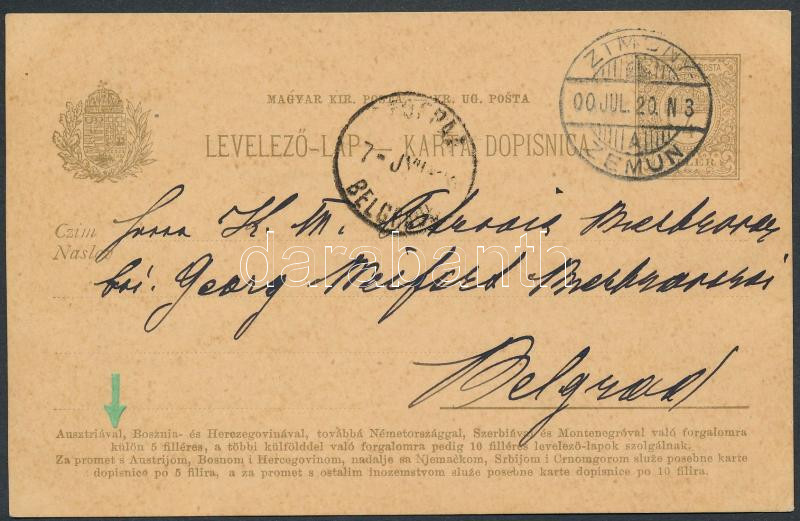 ZIMONY
POSTA
00 JUL. 20. N 3
A
ZEMUN
MAGYAR KIR. POSTA KR. UG. POŠTA
LEVELEZŐ-LAP — KARTA DOPISNICA
7-
BELGRADE
Czim Herrn K. M.
Naslov
bei Georg
Belgrad
darabanth
Ausztriával, Bosznia- és Herczegovinával, továbbá Németországgal, Szerbiával és Montenegróval való forgalomra
külön 5 filléres, a többi külfölddel való forgalomra pedig 10 filléres levelező-lapok szolgálnak.
Za promet s Austrijom, Bosnom i Hercegovinom, nadalje sa Njemačkom, Srbijom i Crnomgorom služe posebne karte
dopisnice po 5 filira, a za promet s ostalim inozemstvom služe posebne karte dopisnice po 10 filira.